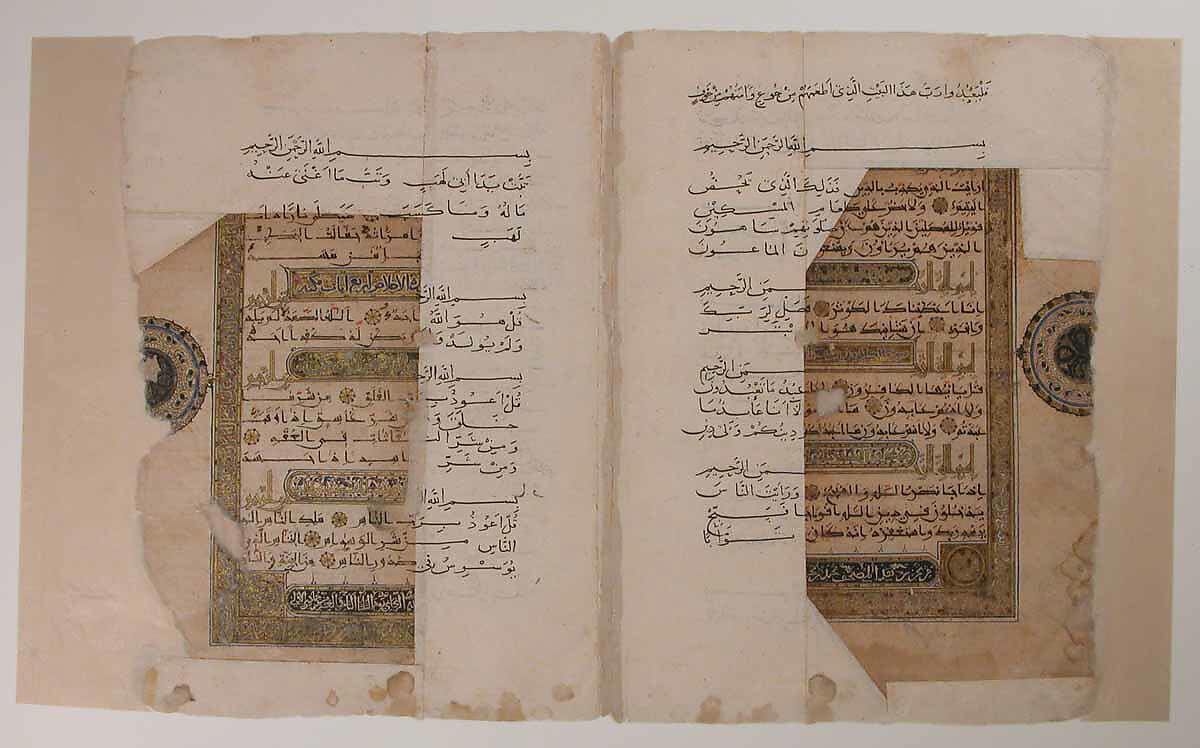 فليعبدوا رب هذا البيت الذي أطعمهم من جوع وآمنهم من خوف
بسم الله الرحمن الرحيم
ارايت الذي يكذب بالدين فذلك الذي
اليتيم ولا يحض على طعام المسكين
فويل للمصلين الذين هم عن صلاتهم ساهون
الذين هم يراؤن ويمنعون الماعون
من الرحيم
انا اعطيناك الكوثر فصل لربك
وانحر ان شانئك هو الابتر
من الرحيم
قل يايها الكافرون لا اعبد ما تعبدون
ولا انتم عابدون ما اعبد ولا انا عابد ما
عبدتم ولا انتم عابدون ما اعبد لكم دينكم ولي دين
من الرحيم
اذا جا نصر الله والفتح ورأيت الناس
يدخلون في دين الله افواجا فسبح
بحمد ربك واستغفره انه كان توابا
بسم الله الرحمن الرحيم
تبت يدا أبي لهب وتب ما أغنى عنه
ماله وما كسب سيصلى نارا ذات
لهب وامراته حمالة الحطب
في جيدها حبل من مسد
سورة الاخلاص اربع ايات مكية
بسم الله الر
قل هو الله احد الله الصمد لم يلد
ولم يولد ولم يكن له كفوا احد
بسم الله الر
قل أعوذ برب الفلق من شر ما
خلق ومن شر غاسق اذا وقب
ومن شر النفاثات في العقد
ومن شر حاسد اذا حسد
بسم الله ا
قل أعوذ برب الناس ملك الناس اله
الناس من شر الوسواس الخناس الذي
يوسوس في صدور الناس من الجنة والناس